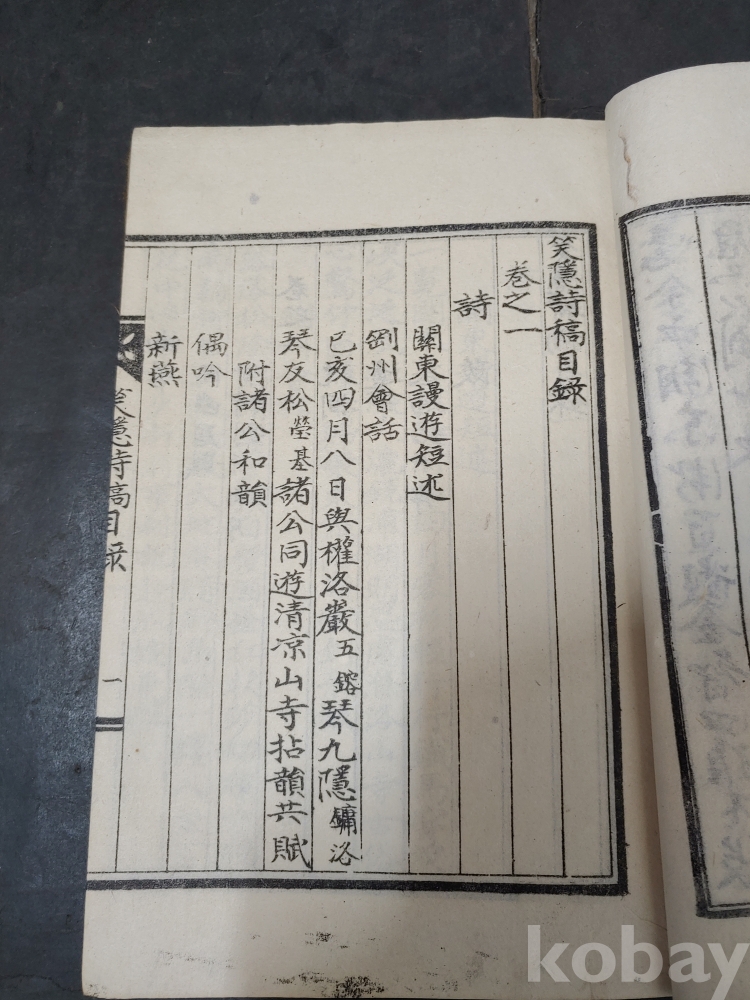 笑隱詩稿目録
卷之一
詩
關東謾遊短述
剛州會話
己亥四月八日與權洛巖五鎔琴九隱鏞洛
琴友松瑩基諸公同遊清凉山寺拈韻共賦
附諸公和韻
偶吟
新燕
笑隱詩稿目録
一
kobay